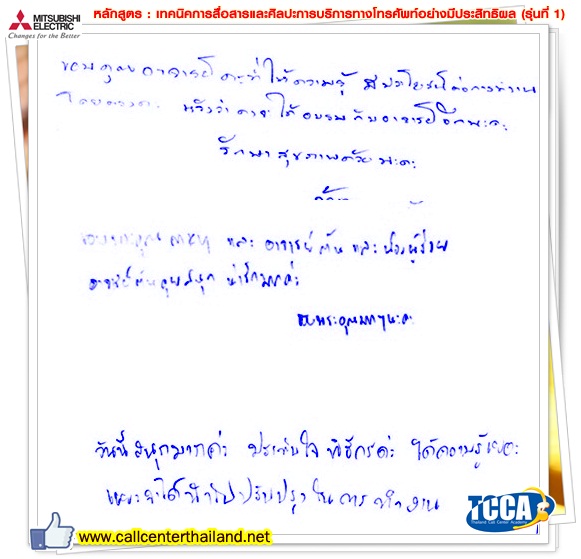 MITSUBISHI
ELECTRIC
Changes for the Better
หลักสูตร : เทคนิคการสื่อสารและศิลปะการบริการทางโทรศัพท์อย่างมีประสิทธิผล (รุ่นที่ 1)
ขอบคุณอาจารย์ค่ะที่ให้ความรู้ มีประโยชน์ต่อการทำงาน
โดยตรงค่ะ หวังว่าคงได้อบรมกับอาจารย์อีกนะคะ
รักษาสุขภาพด้วยนะคะ
ขอบพระคุณ และ อาจารย์ต้น และน้องผู้ช่วย
อาจารย์ต้นคุยสนุก น่ารักมากค่ะ
ขอบพระคุณมากๆนะคะ
วันนี้สนุกมากค่ะ ประทับใจ พิธีกรค่ะ ได้ความรู้เยอะ
และจะได้นำไปปรับปรุงในการทำงาน
TCCA
Thailand Call Center Academy
www.callcenterthailand.net